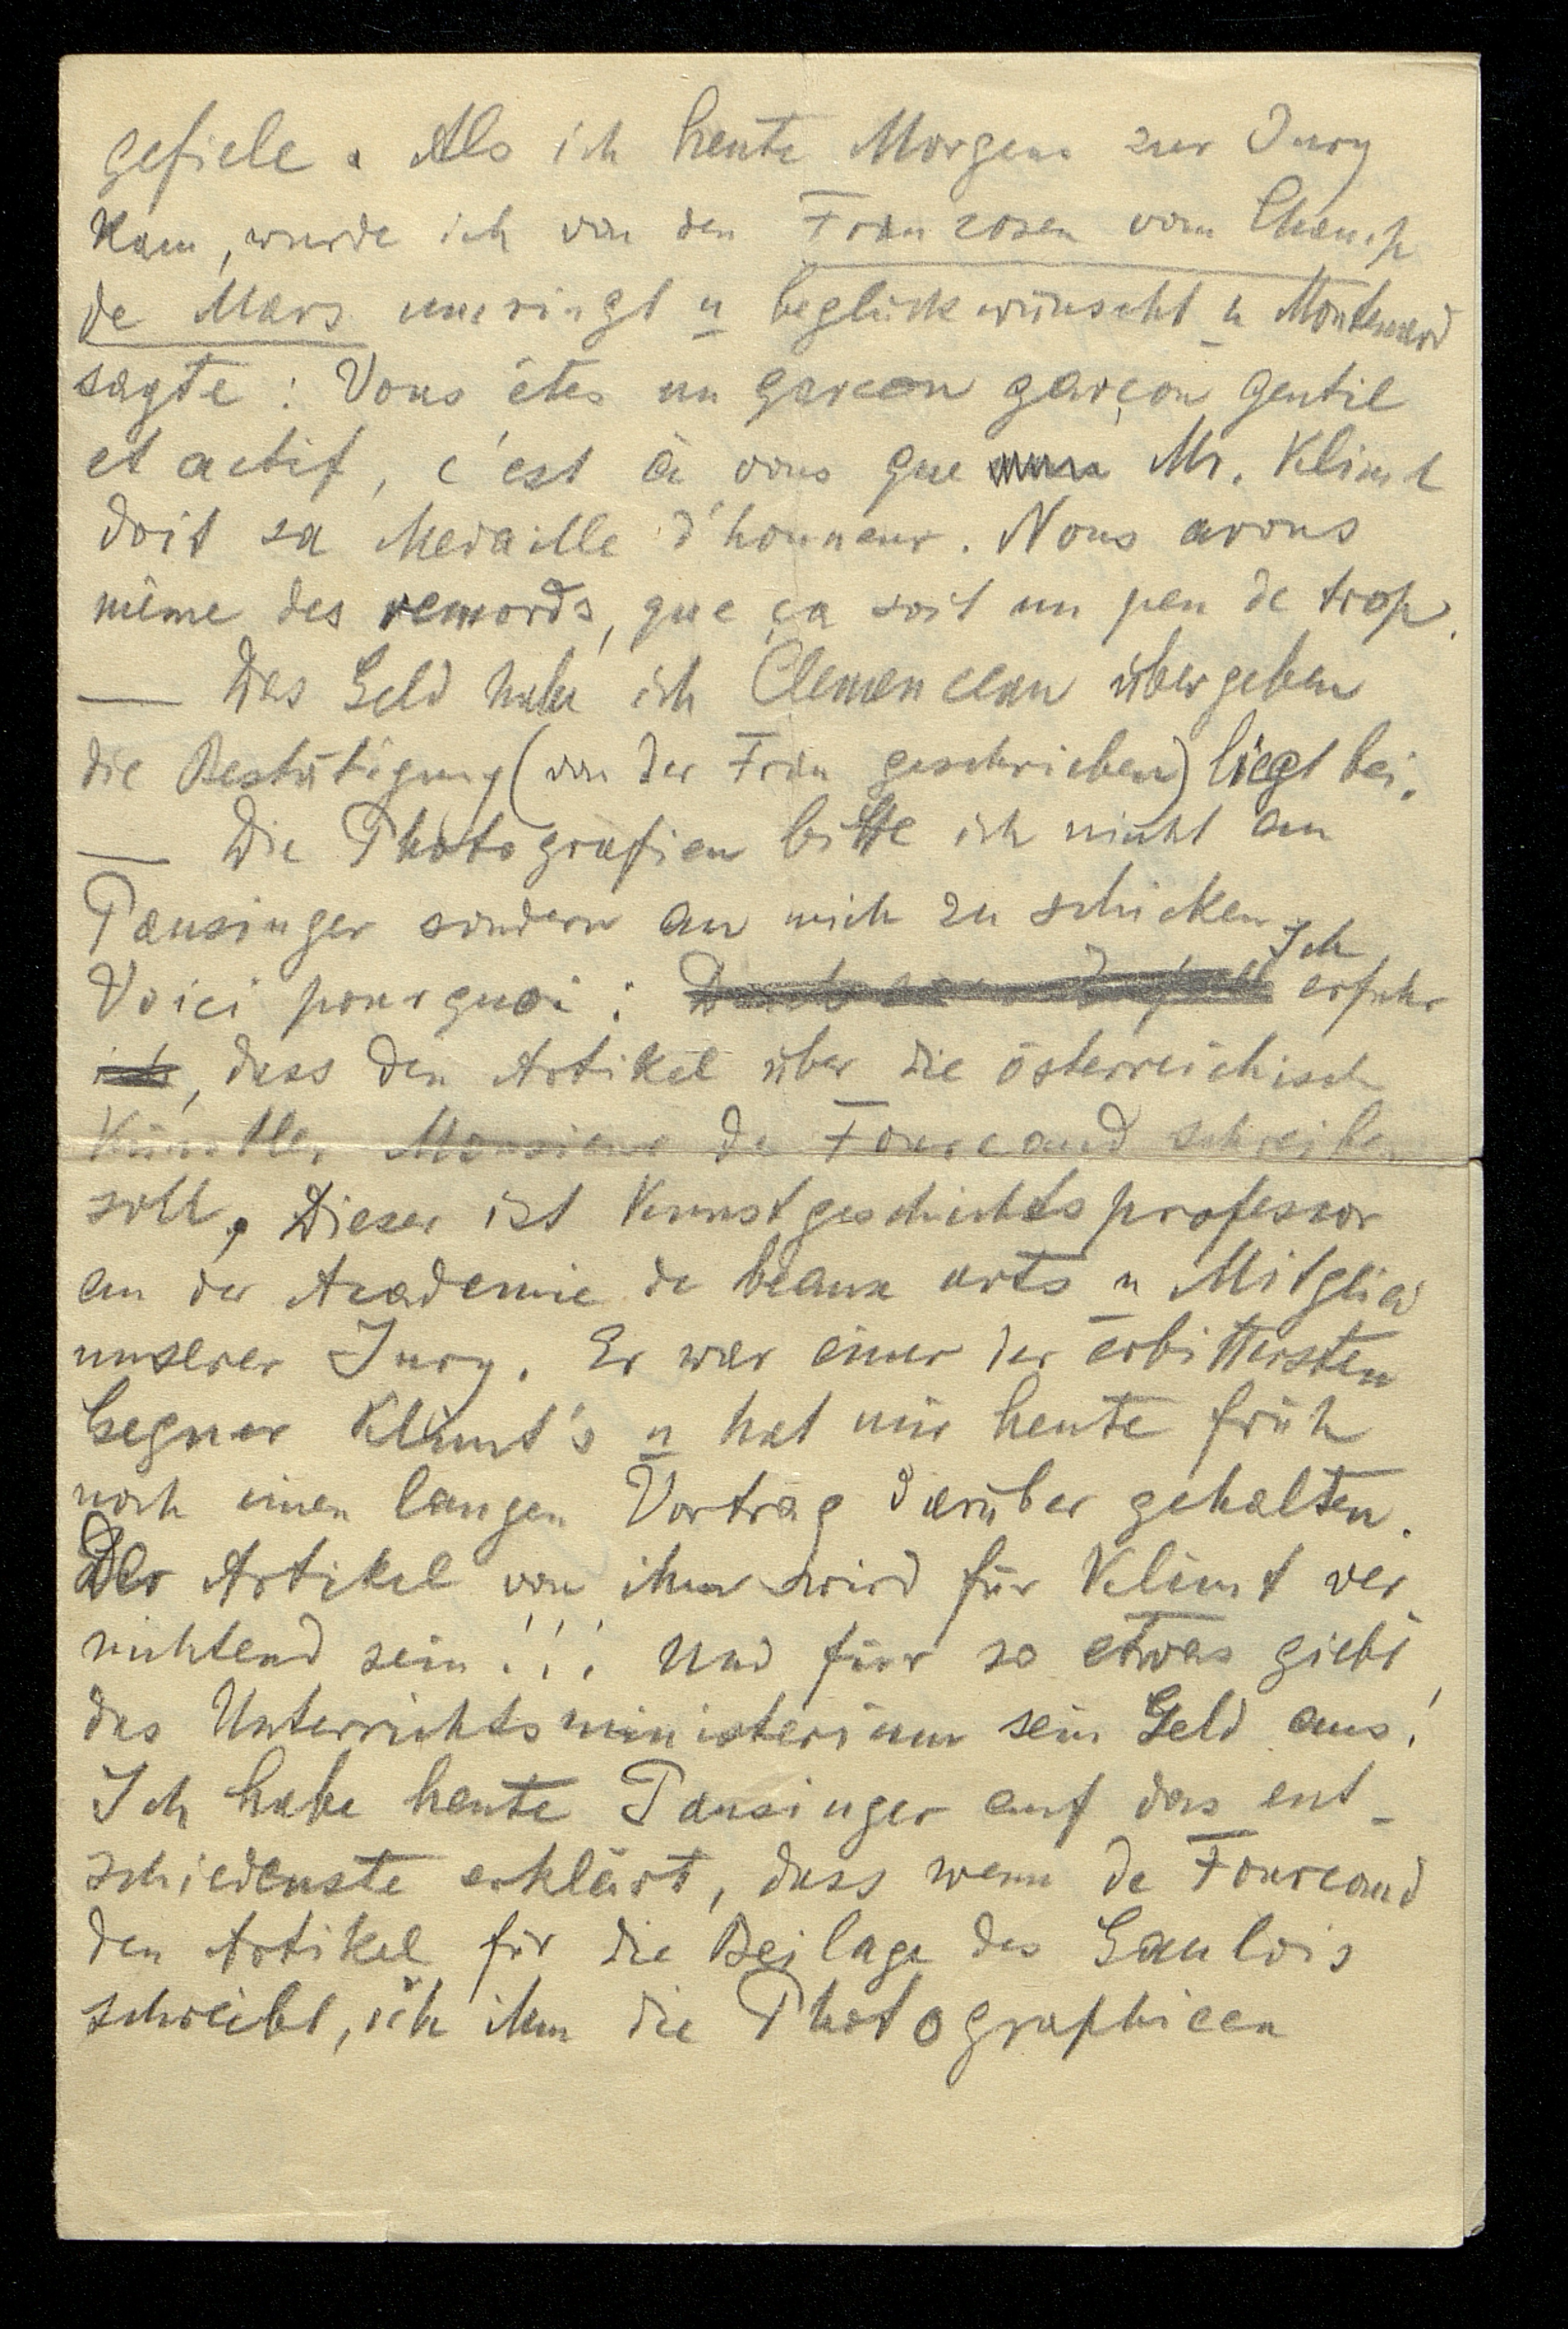 gefiele. Als ich heute Morgens zur Jury
kam, wurde ich von den Franzosen vom Champ
de Mars umringt u beglückwünscht u Montenard
sagte: Vous êtes un garcon garçon gentil
et actif, c'est à vous que Mr. Klimt
doit sa Medaille d'honneur. Nous avons
même des remords, que ça soit un peu de trop.
— Das Geld habe ich Clemenceau übergeben
die Bestätigung (von der Frau geschrieben) liegt bei.
— Die Photografien bitte ich nicht an
Pausinger sondern an mich zu schicken
Voici pourquoi: Ich erfuhr
ich, dass den Artikel über die österreichisch
Künstler Monsieur de Fourcaud schreiben
soll, Dieser ist Kunstgeschichtsprofessor
an der Academie de beaux arts u Mitglied
unserer Jury. Er war einer der erbittersten
Gegner Klimt's u hat mir heute früh
noch einen langen Vortrag darüber gehalten.
Der Artikel von ihm wird für Klimt ver
nichtend sein!!! Und für so etwas giebt
das Unterrichtsministerium sein Geld aus!
Ich habe heute Pausinger auf das ent-
schiedenste erklärt, dass wenn de Fourcaud
den Artikel für die Beilage des Gaulois
schreibt, ich ihm die Photographieen